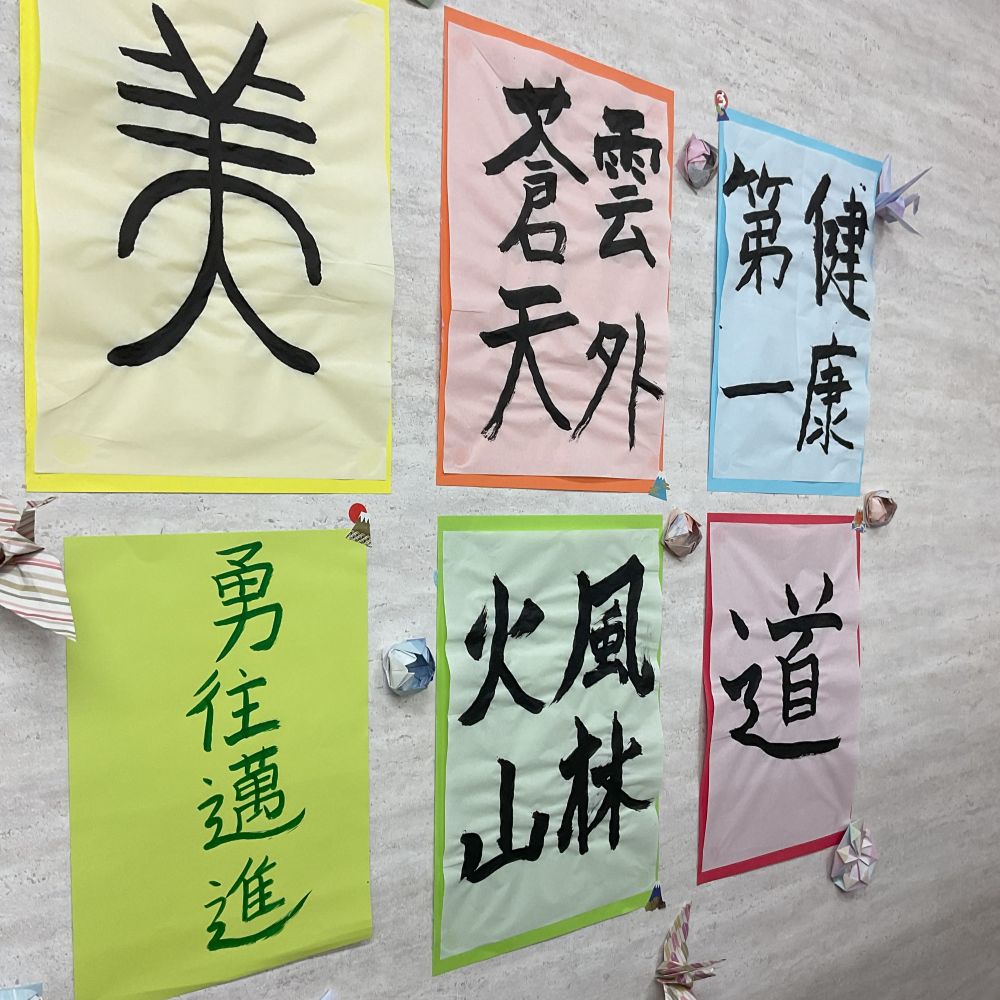 美
雲外
蒼天
健康
第一
勇往邁進
風林
火山
道